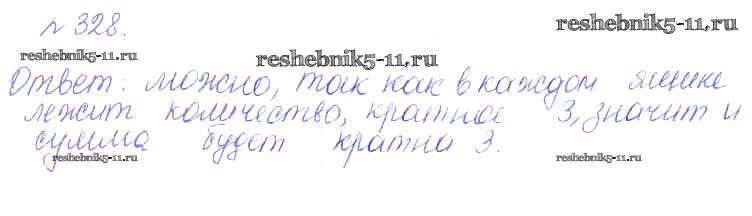 № 328.
reshebnik5-11.ru
reshebnik5-11.ru
reshebnik5-11.ru
Ответ: можно, так как в каждом ящике
лежит количество, кратное 3, значит и
сумма будет кратна 3.
reshebnik5-11.ru
reshebnik5-11.ru
reshebnik5-11.ru